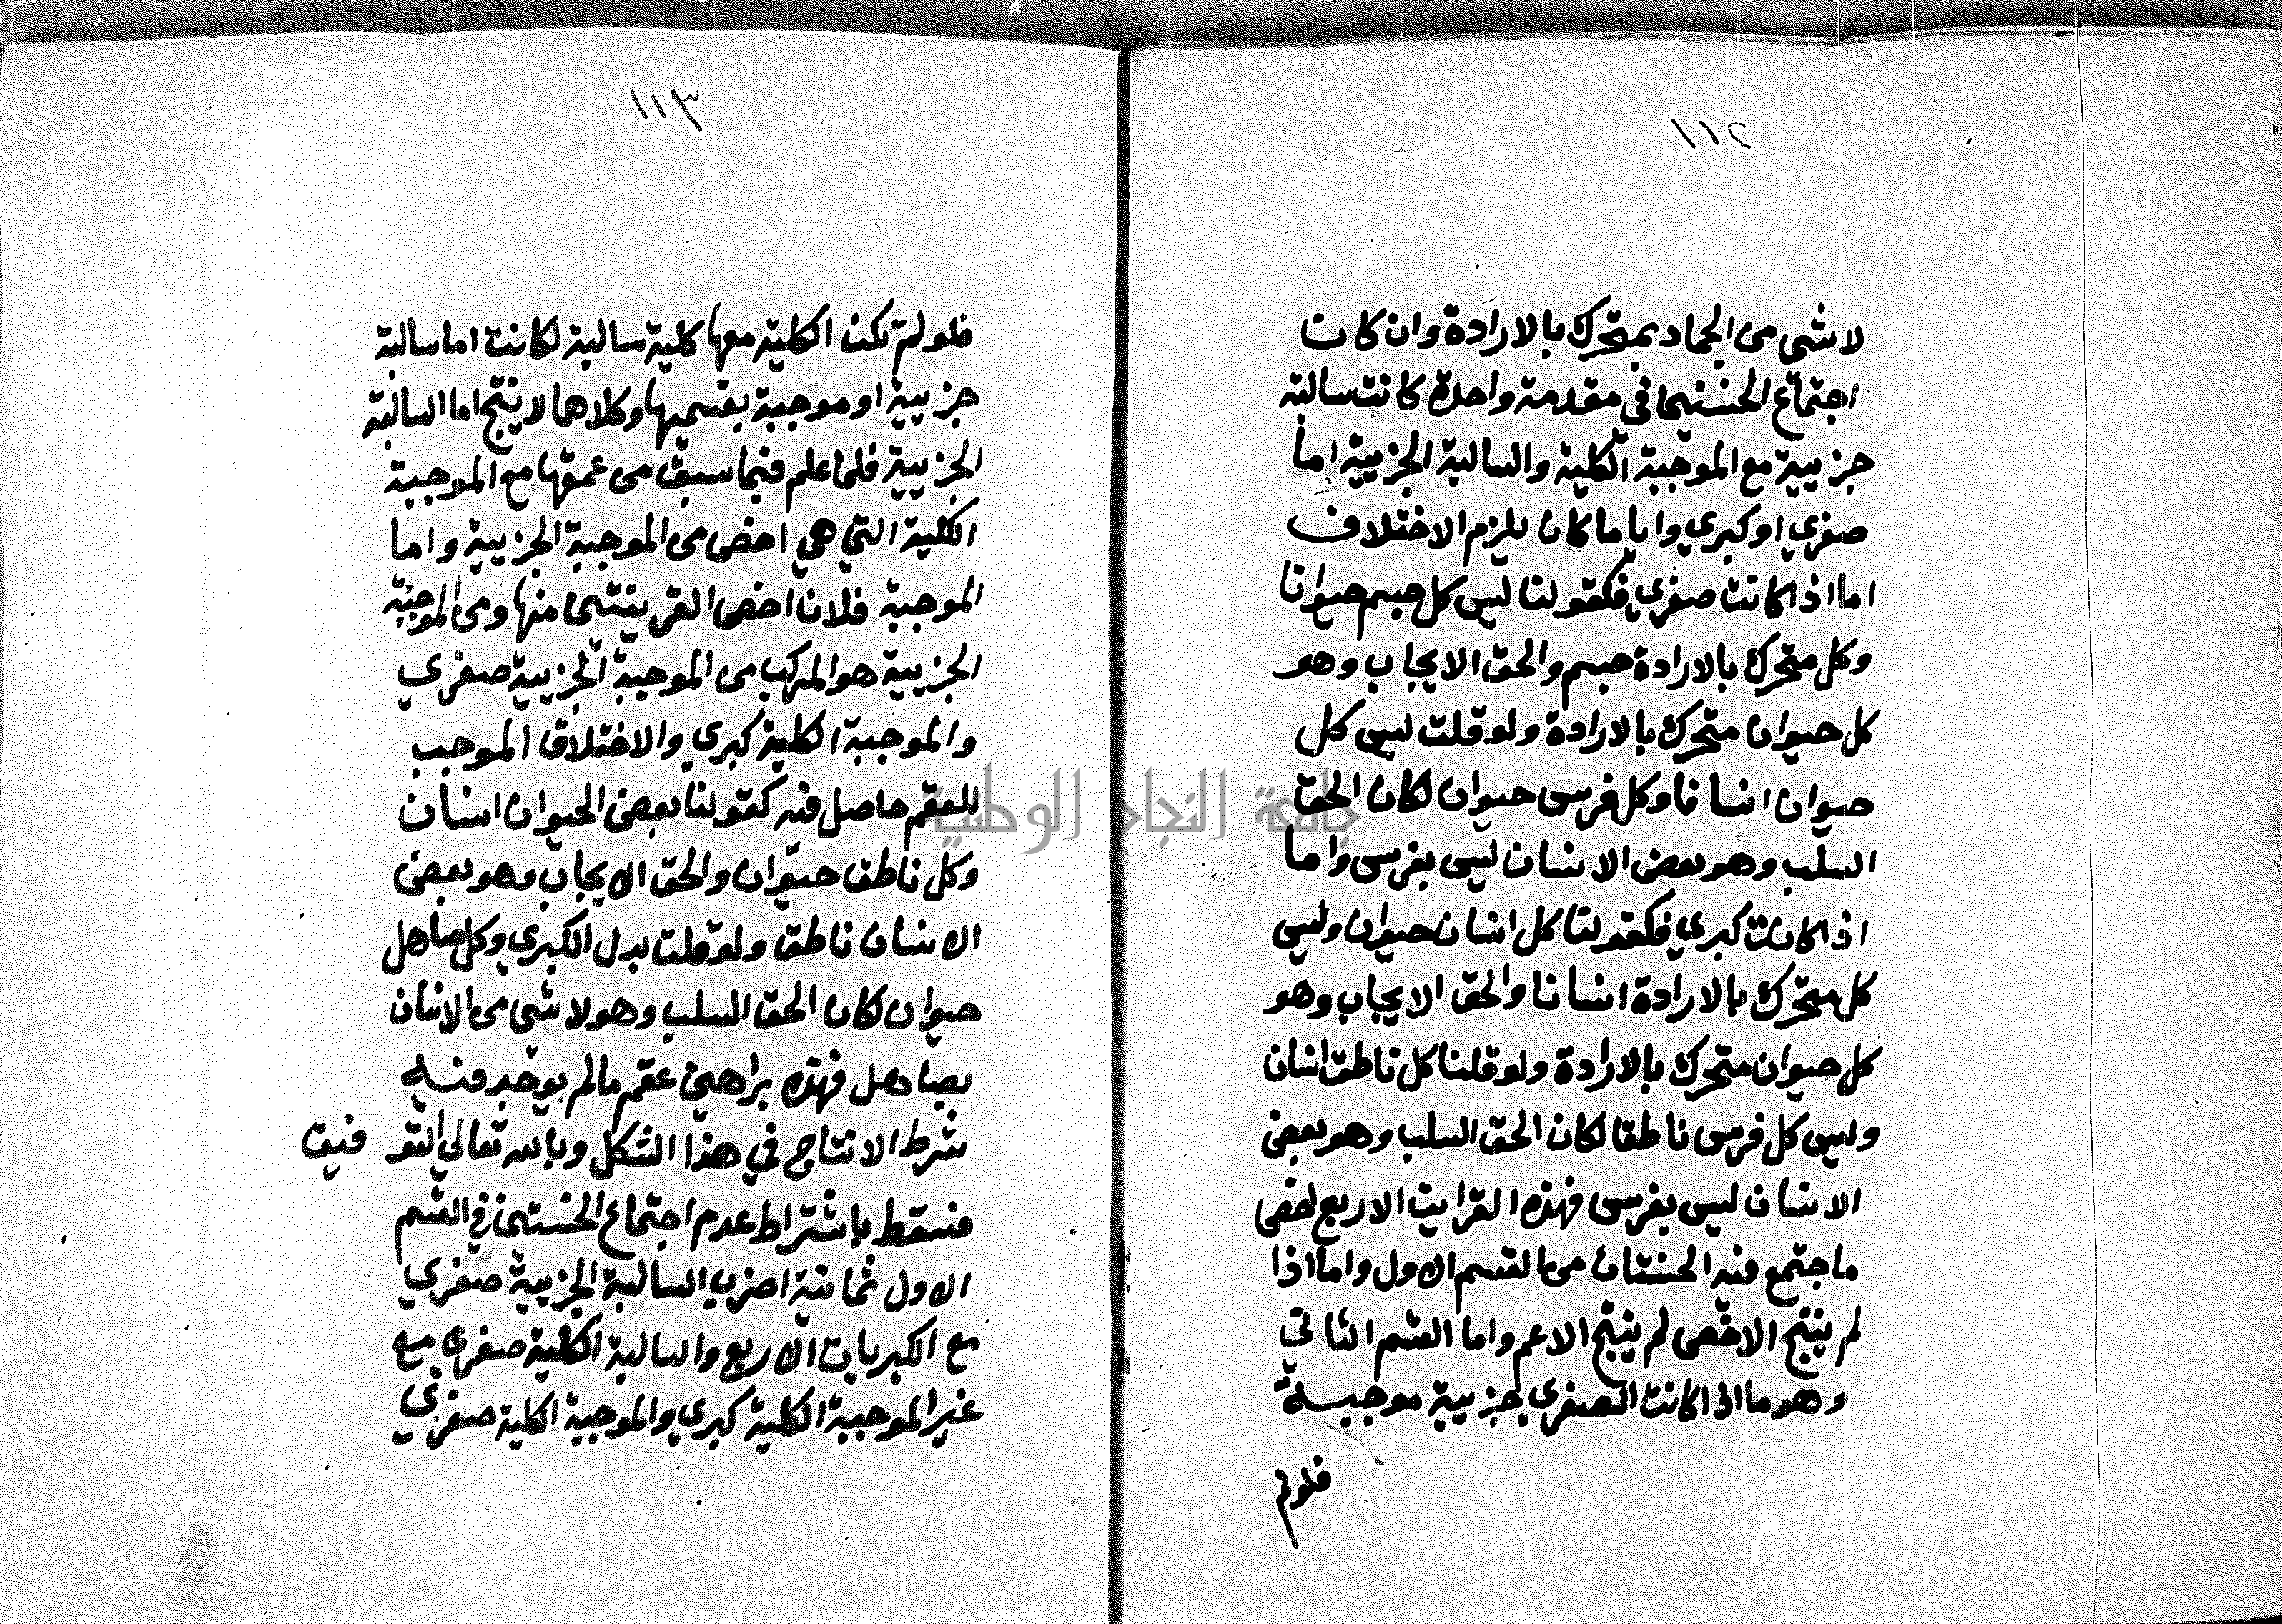 ١١٢
لا شي من الجماد بمتحرك بالارادة وان كانت
اجتماع الخستين في مقدمة واحدة كانت سالبة
جزيية مع الموجبة الكلية والسالبة الجزيية اما
صغري او كبري وايا ما كان يلزم الاختلاف
اما اذا كانت صغري فكقولنا ليس كل جسم حيوانا
وكل متحرك بالارادة جسم والحق الايجاب وهو
كل حيوان متحرك بالارادة ولو قلت ليس كل
حيوان انسانا وكل فرس حيوان لكان الحق
السلب وهو بعض الانسان ليس بفرس واما
اذا كانت كبري فكقولنا كل انسان حيوان وليس
كل متحرك بالارادة انسانا والحق الايجاب وهو
كل حيوان متحرك بالارادة ولو قلنا كل ناطق انسان
وليس كل فرس ناطقا لكان الحق السلب وهو بعض
الانسان ليس بفرس فهذه القراين الاربع اخص
ما اجتمع فيه الخستان من القسم الاول واما اذا
لم ينتج الاخص لم ينتج الاعم واما القسم الثاني
وهو ما اذا كانت الصغري جزيية موجبة
فلولم
١١٣
فلولم تكن الكلية معها كلية سالبة لكانت اما سالبة
جزيية او موجبة بقسميها وكلاهما لا ينتج اما السالبة
الجزيية فلما علم فيما سبق من عمقها مع الموجبة
الكلية التي هي اخص من الموجبة الجزيية واما
الموجبة فلان اخص القرينتين منها ومن الموجبة
الجزيية هو المركب من الموجبة الجزيية صغري
والموجبة الكلية كبري والاختلاف الموجب
للعقم حاصل فيه كقولنا بعض الحيوان انسان
وكل ناطق حيوان والحق الايجاب وهو بعض
الانسان ناطق ولو قلت بدل الكبري وكل صاهل
حيوان لكان الحق السلب وهو لا شي من الانسان
بصاهل فهذه براهين عقم مالم يوجد فيه
شرط الانتاج في هذا الشكل وبالله تعالي التو فيق
فسقط باشتراط عدم اجتماع الخستين في القسم
الاول ثمانية اضرب السالبة الجزيية صغري
مع الكبريات الاربع والسالبة الكلية صغري مع
غير الموجبة الكلية كبري والموجبة الكلية صغري
جامعة النجاح الوطنية